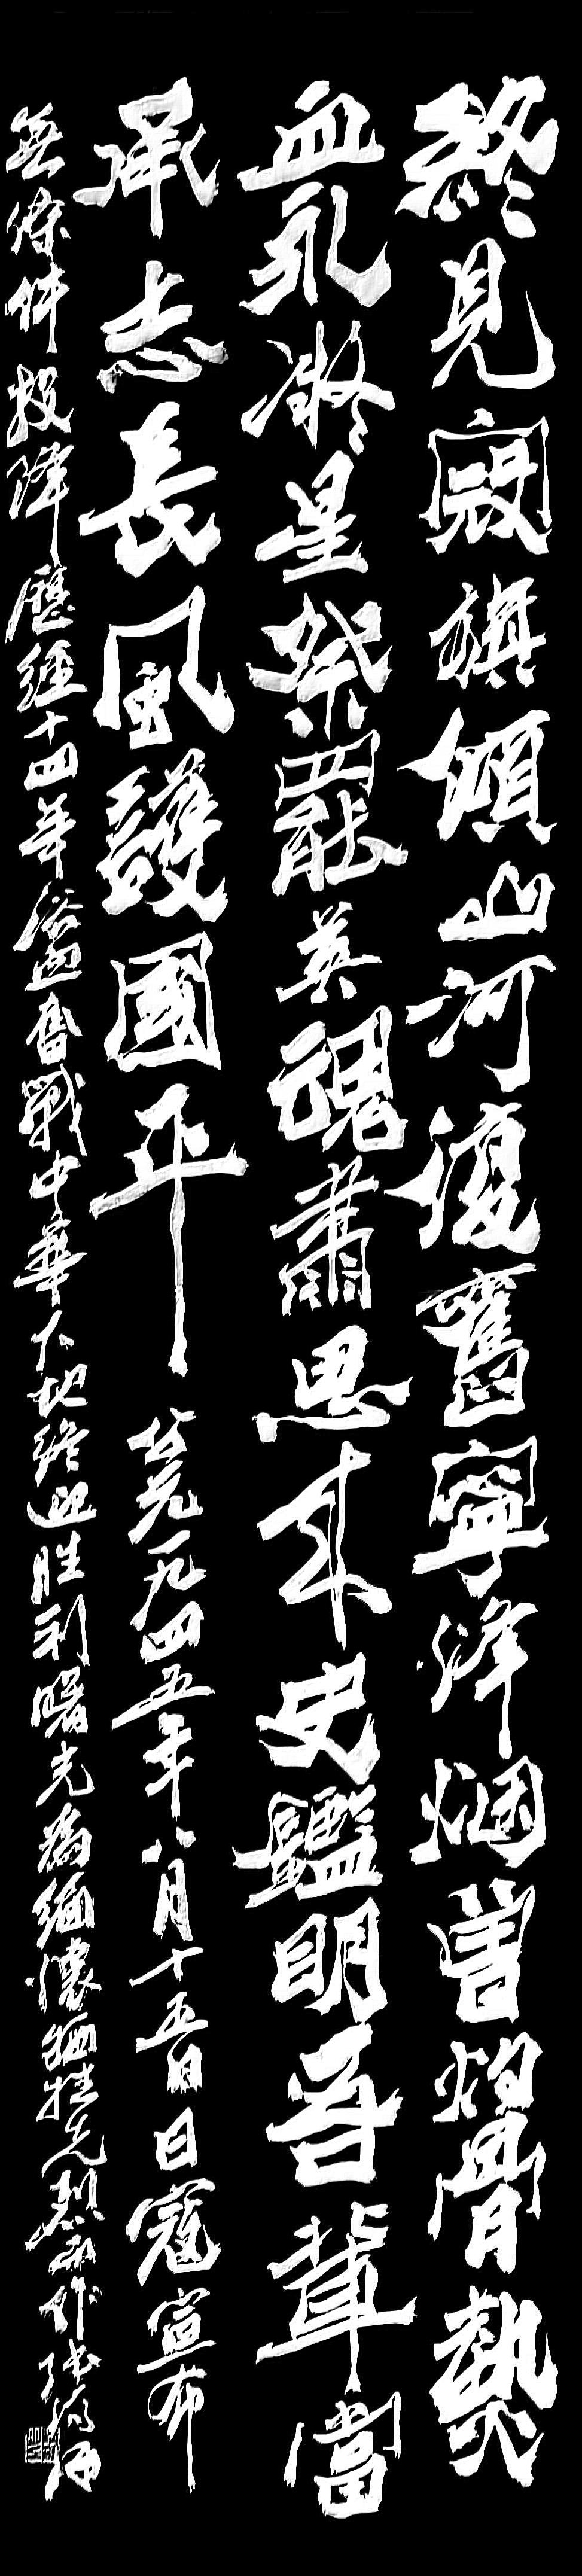 終見寇旗傾山河復舊寧烽烟曾灼骨熱
血永凝星祭罷英魂肅思來史鑑明吾輩當
承志長風護國平 公元一九四五年八月十五日日寇宣布
無條件投降歷經十四年浴血奮戰中華大地終迎胜利曙光為緬懷牺牲先烈而作張